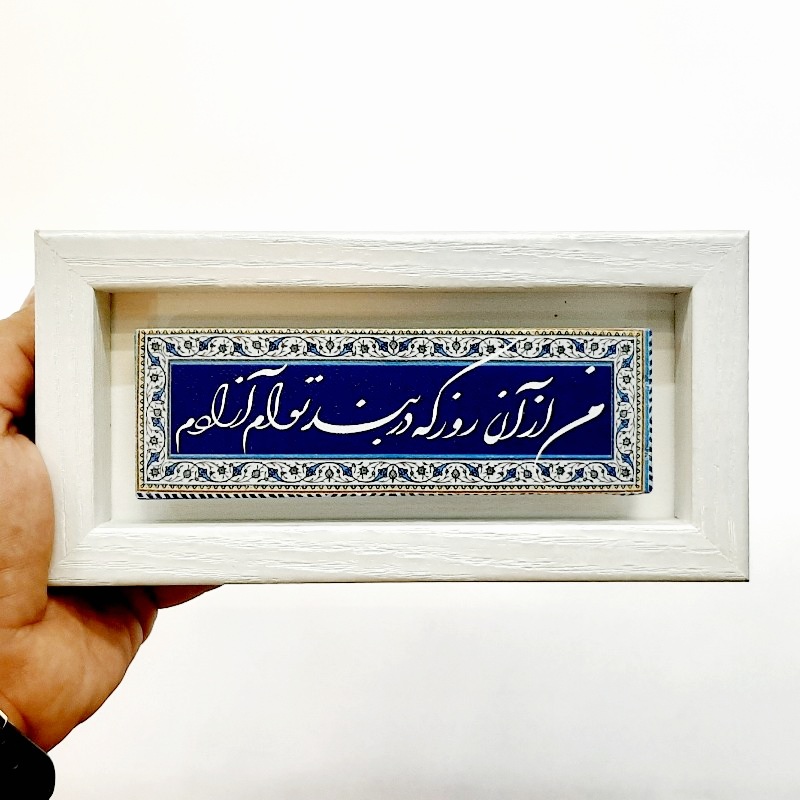 من از آن روز که در بند توام آزادم